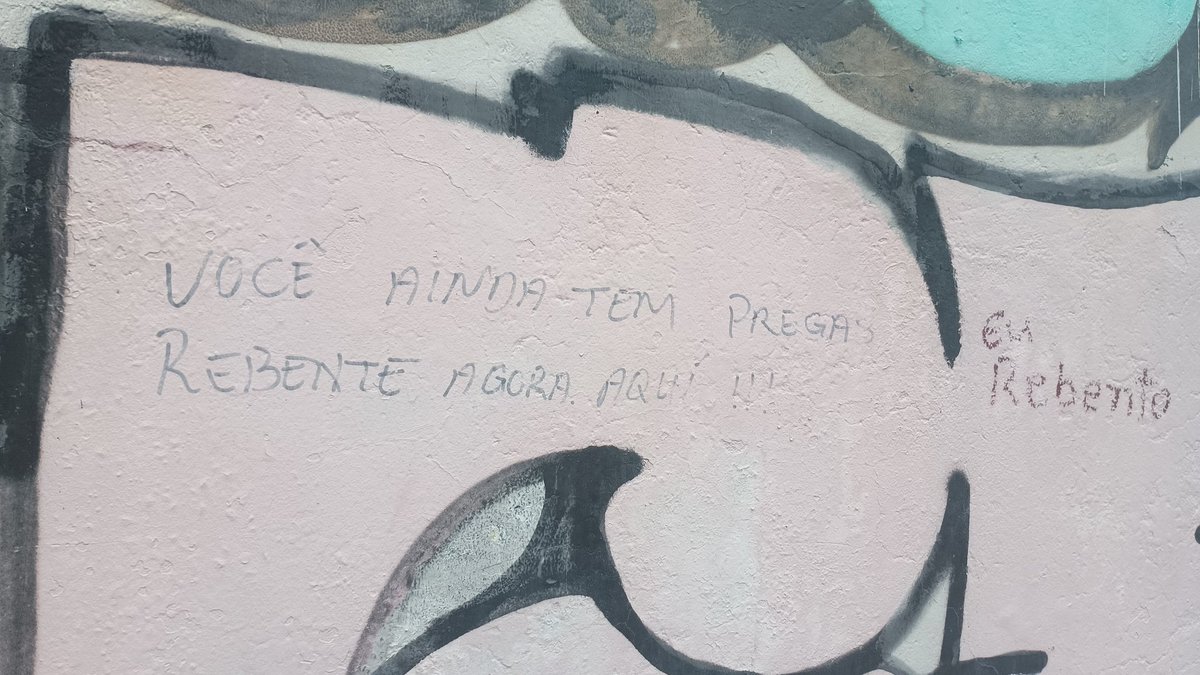 VOCÊ AINDA TEM PREGAS
REBENTE AGORA. AQUÍ !!!
Eu
Rebento